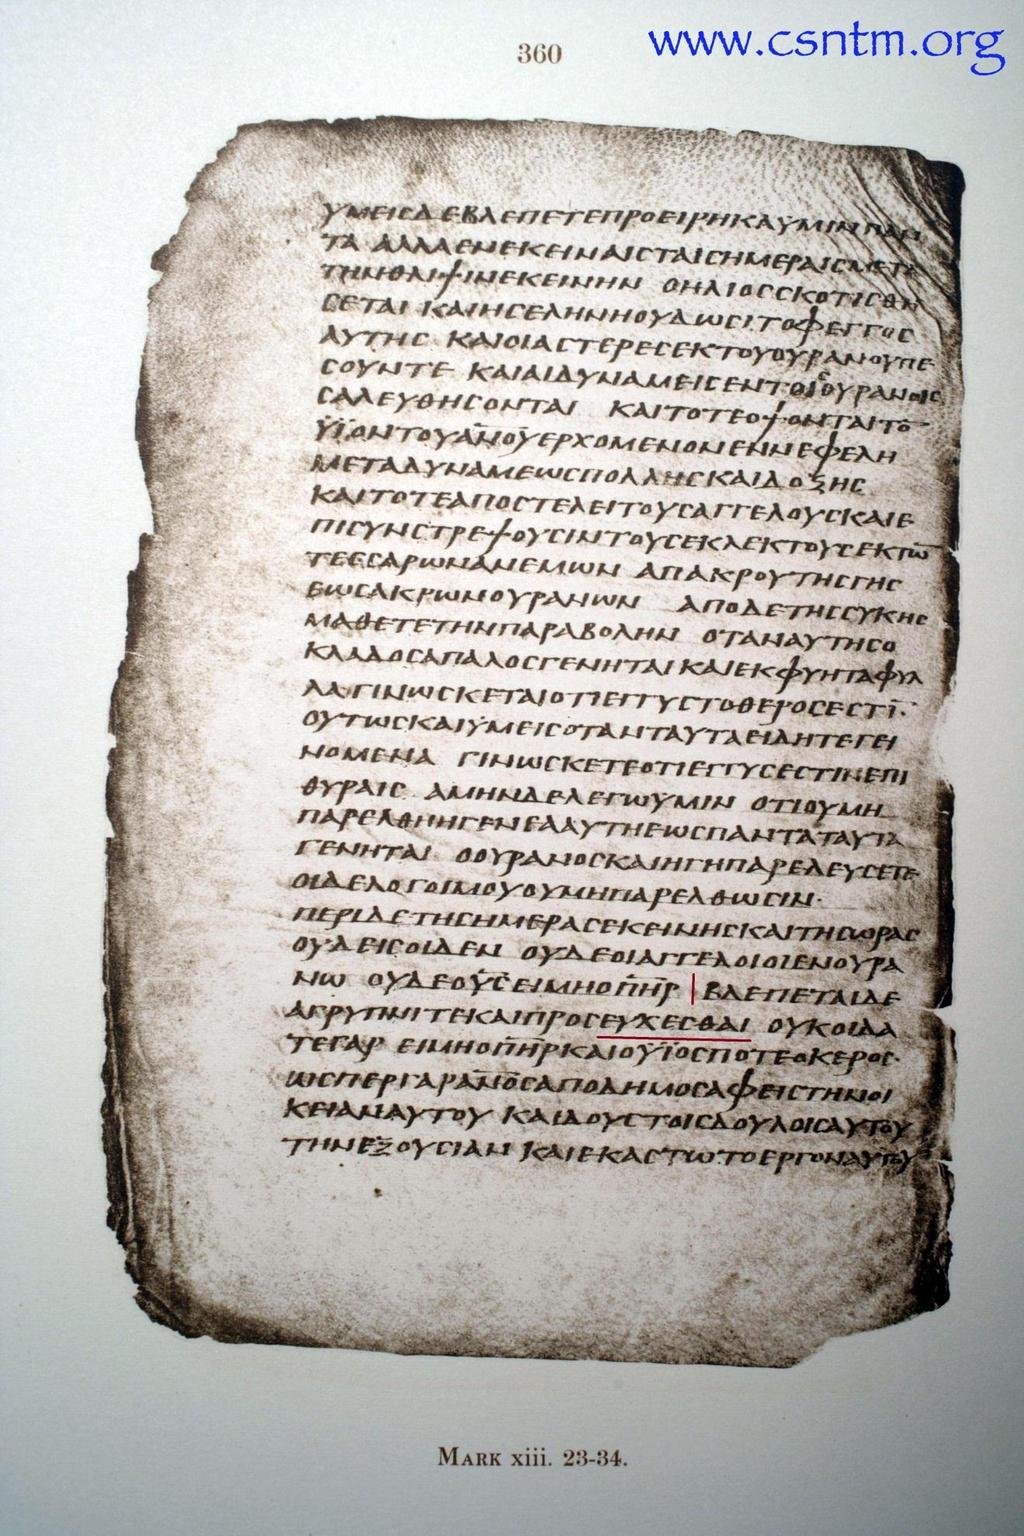 www.csntm.org
360
ΥΜΕΙΣΔΕΒΛΕΠΕΤΕΠΡΟΕΙΡΗΚΑΥΜΙΝΠΑΝ
ΤΑ ΑΛΛΑΕΝΕΚΕΙΝΑΙΣΤΑΙΣΗΜΕΡΑΙΣΜΕΤΑ
ΤΗΝΘΛΙΨΙΝΕΚΕΙΝΗΝ ΟΗΛΙΟΣΣΚΟΤΙΣΘΗ
ΣΕΤΑΙ ΚΑΙΗΣΕΛΗΝΗΟΥΔΩΣΙΤΟΦΕΓΓΟΣ
ΑΥΤΗΣ ΚΑΙΟΙΑΣΤΕΡΕΣΕΚΤΟΥΟΥΡΑΝΟΥΠΕ
ΣΟΥΝΤΕ ΚΑΙΑΙΔΥΝΑΜΕΙΣΕΝΤΟΙΣΟΥΡΑΝΟΙΣ
ΣΑΛΕΥΘΗΣΟΝΤΑΙ ΚΑΙΤΟΤΕΟΨΟΝΤΑΙΤΟ
ΥΙΟΝΤΟΥΑΝΟΥΕΡΧΟΜΕΝΟΝΕΝΝΕΦΕΛΗ
ΜΕΤΑΔΥΝΑΜΕΩΣΠΟΛΛΗΣΚΑΙΔΟΞΗΣ
ΚΑΙΤΟΤΕΑΠΟΣΤΕΛΕΙΤΟΥΣΑΓΓΕΛΟΥΣΚΑΙΕ
ΠΙΣΥΝΣΤΡΕΨΟΥΣΙΝΤΟΥΣΕΚΛΕΚΤΟΥΣΕΚΤΩ̅
ΤΕΣΣΑΡΩΝΑΝΕΜΩΝ ΑΠΑΚΡΟΥΤΗΣΓΗΣ
ΕΩΣΑΚΡΩΝΟΥΡΑΝΩΝ ΑΠΟΔΕΤΗΣΣΥΚΗΣ
ΜΑΘΕΤΕΤΗΝΠΑΡΑΒΟΛΗΝ ΟΤΑΝΑΥΤΗΣΟ
ΚΛΑΔΟΣΑΠΑΛΟΣΓΕΝΗΤΑΙΚΑΙΕΚΦΥΗΤΑΦΥΛ
ΛΑΓΙΝΩΣΚΕΤΑΙΟΤΙΕΓΓΥΣΤΟΘΕΡΟΣΕΣΤΙ̅·
ΟΥΤΩΣΚΑΙΥΜΕΙΣΟΤΑΝΤΑΥΤΑΕΙΔΗΤΕΓΕΙ
ΝΟΜΕΝΑ ΓΙΝΩΣΚΕΤΕΟΤΙΕΓΓΥΣΕΣΤΙΝΕΠΙ
ΘΥΡΑΙΣ ΑΜΗΝΔΕΛΕΓΩΥΜΙΝ ΟΤΙΟΥΜΗ
ΠΑΡΕΛΘΗΗΓΕΝΕΑΑΥΤΗΕΩΣΠΑΝΤΑΤΑΥΤΑ
ΓΕΝΗΤΑΙ ΟΟΥΡΑΝΟΣΚΑΙΗΓΗΠΑΡΕΛΕΥΣΕΤΕ
ΟΙΔΕΛΟΓΟΙΜΟΥΟΥΜΗΠΑΡΕΛΘΩΣΙΝ·
ΠΕΡΙΔΕΤΗΣΗΜΕΡΑΣΕΚΕΙΝΗΣΚΑΙΤΗΣΩΡΑΣ
ΟΥΔΕΙΣΟΙΔΕΝ ΟΥΔΕΟΙΑΓΓΕΛΟΙΟΙΕΝΟΥΡΑ
ΝΩ ΟΥΔΕΟΥΣΕΙΜΗΟΠΗΡ ΒΛΕΠΕΤΑΙΔΕ
ΑΓΡΥΠΝΙΤΕΚΑΙΠΡΟΣΕΥΧΕΣΘΑΙ ΟΥΚΟΙΔΑ
ΤΕΓΑΡ ΕΙΜΗΟΠΗΡΚΑΙΟΥΙΟΣΠΟΤΕΟΚΕΡΟΣ·
ΩΣΠΕΡΓΑΡΑΝΟΣΑΠΟΔΗΜΟΣΑΦΕΙΣΤΗΝΟΙ
ΚΕΙΑΝΑΥΤΟΥ ΚΑΙΔΟΥΣΤΟΙΣΔΟΥΛΟΙΣΑΥΤΟΥ
ΤΗΝΕΞΟΥΣΙΑΝ ΚΑΙΕΚΑΣΤΩΤΟΕΡΓΟΝΑΥΤΟΥ
MARK xiii. 23-34.